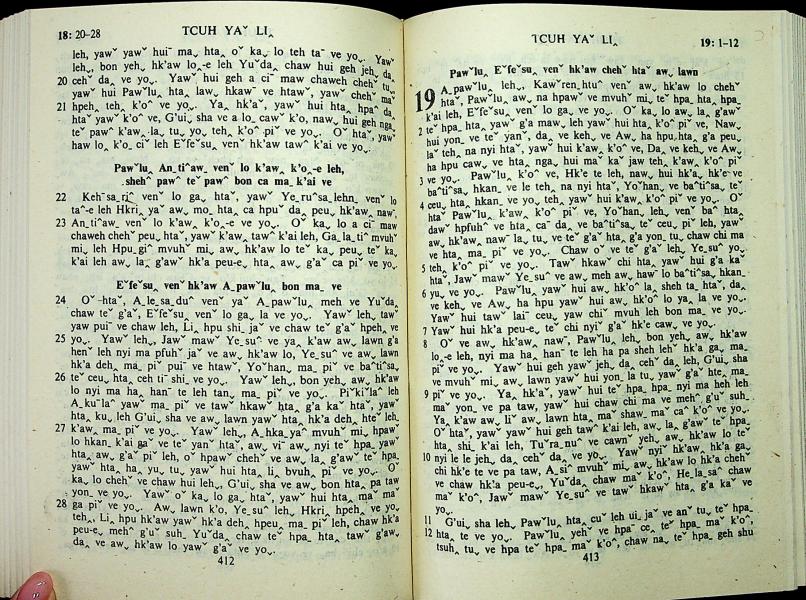 18: 20-28 TCUH YAˇ LI‸
leh, yawˇ yawˇ huiˉ ma‸ hta‸ oˆ ka‸ lo teh taˉ ve yo‸. Yawˇ
leh‸, bon yeh‸ hk'aw lo‸-e leh Yuˇda‸ chaw hui geh jeh‸ da‸
20 cehˇ da‸ ve yo‸. Yawˇ hui geh a ciˉ maw chaweh cheh tu‸
yawˇ hui Pawˇlu‸ hta‸ law‸ hkawˇ ve htawˇ, yawˇ chehˇ ma‸
21 hpeh‸ teh‸ k'oˆ ve yo‸. Ya‸ hk'aˇ, yawˇ hui hta‸ hpaˇ da‸
htaˇ yawˇ k'oˆ ve, G'ui‸ sha ve a lo‸ cawˇ k'o, naw‸ hui geh nga‸
teˇ pawˆ k'aw‸ la‸ tu‸ yo‸ teh‸ k'oˆ piˇ ve yo‸. Oˇ htaˇ, yawˇ
haw lo‸ k'o‸ ci leh Eˇfeˇsu‸ venˇ hk'aw tawˆ k'ai ve yo‸.
Pawˇlu‸ An‸tiˆaw‸ venˇ lo k'aw‸ k'o‸-e leh,
shehˆ pawˆ teˇ pawˆ bon ca ma‸ k'ai ve
22 Kehˉsa‸riˆ venˇ lo ga‸ htaˇ, yawˇ Ye‸ruˆsa‸lehn‸ venˇ lo
taˆ-e leh Hkri‸ yaˇ aw‸ mo‸ hta‸ ca hpuˇ da‸ peu‸ hk'aw nawˇ,
23 An‸tiˆaw‸ venˇ lo k'aw‸ k'o‸-e ve yo‸. Oˇ ka‸ lo a ciˉ maw
chaweh chehˇ peu‸ htaˇ, yawˇ k'aw‸ tawˆ k'ai leh, Ga‸la‸tiˆ mvuhˇ
mi‸ leh Hpu‸giˆ mvuhˇ mi‸ aw‸ hk'aw lo teˇ ka‸ peu‸ teˇ ka‸
k'ai leh aw‸ la‸ g'awˇ hk'a peu-e‸ hta‸ aw‸ g'aˇ ca piˇ ve yo‸.
Eˇfeˇsu‸ venˇ hk'aw A‸pawˇlu‸ bon ma‸ ve
24 Oˇ-htaˇ, A‸le‸sa‸duˆ venˇ yaˇ A‸pawˇlu‸ meh ve Yuˇda‸
chaw teˇ g'aˇ, Eˇfeˇsu‸ venˇ lo ga‸ la ve yo‸. Yawˇ leh‸ taw‸
yaw puiˉ ve chaw leh, Li‸ hpu shi‸ jaˇ ve chaw teˇ g'aˇ hpeh‸ ve
25 yo‸. Yawˇ leh‸, Jawˇ mawˇ Ye‸suˆ ve ya‸ k'aw aw‸ lawn g'a
henˇ leh nyi ma pfuhˇ jaˇ ve aw‸ hk'aw lo, Ye‸suˆ ve aw‸ lawn
hk'a deh‸ ma‸ piˇ puiˉ ve htawˇ, Yoˇhan‸ ma‸ piˇ ve baˆtiˆsa‸
26 teˇ ceu‸ hta‸ ceh tiˉ shi‸ ve yo‸. Yawˇ leh‸, bon yeh‸ aw‸ hk'aw
lo nyi ma ha‸ hanˉ te leh tan‸ ma‸ piˇ ve yo‸. Piˇkiˇlaˆ leh
A‸kuˇlaˆ yawˇ ma‸ piˇ ve tawˇ hkawˇ hta‸ g'a kaˇ htaˇ, yawˇ
hta‸ ku‸ leh G'ui‸ sha ve aw‸ lawn yawˇ hta‸ hk'a deh‸ hteˇ leh
27 k'aw‸ ma‸ piˇ ve yo‸. Yawˇ leh‸, A‸hka‸yaˆ mvuhˇ mi‸ hpawˇ
lo hkan‸ k'ai gaˇ ve teˇ yanˇ htaˇ, aw‸ viˉ aw‸ nyi teˇ hpa‸ yawˇ
hta‸ aw‸ g'aˇ pi leh, oˇ hpawˇ chehˇ ve aw‸ la‸ g'awˇ teˇ hpa‸
yawˇ hta‸ ha‸ yu‸ tu‸ yawˇ hui hta‸ li‸ bvuh‸ piˇ ve yo‸. Oˇ
ka‸ lo chehˇ ve chaw hui leh‸, G'ui‸ sha ve aw‸ bon hta‸ pa taw
yon‸ ve yo‸. Yawˇ oˇ ka‸ lo ga‸ htaˇ, yawˇ hui hta‸ maˇ maˇ
28 ga piˇ ve yo‸. Aw‸ lawn k'o, Ye‸suˆ leh‸ Hkri‸ hpeh‸ ve yo‸
teh‸, Li‸ hpu hk'aw yawˇ hk'a deh‸ hpeu‸ ma‸ piˇ leh, chaw hk'a
peu-e‸ mehˇ g'uˇ suh‸ Yuˇda‸ chaw teˇ hpa‸ hta‸ tawˇ g'aw‸
da‸ ve aw‸ hk'aw lo yawˇ g'aˆ ve yo‸.
412
TCUH YAˇ LI‸ 19: 1-12
Pawˇlu‸ Eˇfeˇsu‸ venˇ hk'aw chehˇ htaˇ aw‸ lawn
19 A‸pawˇlu‸ leh‸, Kawˇren‸htuˆ venˇ aw‸ hk'aw lo chehˇ
htaˇ, Pawˇlu‸ aw‸ na hpawˇ ve mvuhˇ mi‸ teˇ hpa‸ hta‸ hpa‸
k'ai leh, Eˇfeˇsu‸ venˇ lo ga‸ ve yo‸. Oˇ ka‸ lo aw‸ la‸ g'awˇ
2 teˇ hpa‸ hta‸ yawˇ g'a maw‸ leh yawˇ hui hta‸ k'oˆ piˇ ve, Naw‸
hui yon‸ ve teˇ yanˇ, da‸ ve keh‸ ve Aw‸ ha hpu hta‸ g'a peu‸
laˇ teh‸ na nyi htaˇ, yawˇ hui k'aw‸ k'oˆ ve, Da‸ ve keh‸ ve Aw‸
ha hpu caw‸ ve hta‸ nga‸ hui maˇ kaˇ jaw teh‸ k'aw‸ k'oˆ piˇ
3 ve yo‸. Pawˇlu‸ k'oˆ ve, Hk'e te leh‸ naw‸ hui hk'a‸ hk'e ve
baˆtiˆsa‸ hkan‸ ve le teh‸ na nyi htaˇ, Yoˇhan‸ ve baˆtiˆsa‸ teˇ
4 ceu‸ hta‸ hkan‸ ve yo‸ teh‸ yawˇ hui k'aw‸ k'oˆ piˇ ve yo‸. Oˇ
htaˇ Pawˇlu‸ k'aw‸ k'oˆ piˇ ve, Yoˇhan‸ leh‸ venˇ baˇ hta‸
dawˇ hpfuhˇ ve hta‸ caˇ da‸ ve baˆtiˆsa‸ teˇ ceu‸ pi‸ leh, yawˇ
aw‸ hk'aw‸ nawˇ la‸ tu‸ ve teˇ g'aˇ hta‸ g'a yon‸ tu‸ chaw chi ma
ve hta‸ ma‸ piˇ ve yo‸. Chaw oˇ ve teˇ g'aˇ leh‸ Ye‸suˆ yo‸
5 teh‸ k'oˆ piˇ ve yo‸. Tawˇ hkawˇ chi hta‸ yawˇ hui g'a kaˇ
htaˇ, Jawˇ mawˇ Ye‸suˆ ve aw‸ meh aw‸ hawˇ lo baˆtiˆsa‸ hkan‸
6 yu‸ ve yo‸. Pawˇlu‸ yawˇ hui aw‸ hk'oˆ la‸ sheh ta‸ htaˇ, da‸
ve keh‸ ve Aw‸ ha hpu yawˇ hui aw‸ hk'oˆ lo ya‸ la ve yo‸.
Yawˇ hui tawˇ laiˉ ceu‸ yaw chiˆ mvuh leh bon ma‸ ve yo‸.
7 Yawˇ hui hk'a peu-e‸ teˇ chi nyiˇ g'aˇ hk'e caw‸ ve yo‸.
8 Oˇ ve aw‸ hk'aw‸ nawˇ, Pawˇlu‸ leh‸ bon yeh‸ aw‸ hk'aw
lo‸-e leh, nyi ma ha‸ hanˉ te leh ha pa sheh lehˇ hk'a ga‸ ma‸
piˇ ve yo‸. Yawˇ hui geh yawˇ jeh‸ da‸ cehˇ da‸ leh, G'ui‸ sha
ve mvuhˇ mi‸ aw‸ lawn yawˇ hui yon‸ la tu‸ yawˇ g'aˇ hte‸ ma‸
9 piˇ ve yo‸. Ya‸ hk'aˇ, yawˇ hui teˇ hpa‸ hpa‸ nyi ma heh leh
maˇ yon‸ ve pa taw, yawˇ hui chaw chi ma ve mehˆ g'uˇ suh‸
Ya‸ k'aw aw‸ liˇ aw‸ lawn hta‸ maˇ shaw‸ ma‸ caˆ k'oˆ ve yo‸.
Oˇ htaˇ, yawˇ yawˇ hui geh tawˆ k'ai leh, aw‸ la‸ g'awˇ teˇ hpa‸
hta‸ shi‸ k'ai leh, Tuˇra‸nuˆ ve cawnˇ yeh‸ aw‸ hk'aw lo teˇ
10 nyi le le jeh‸ da‸ cehˇ da‸ ve yo‸. Yawˇ nyiˇ hk'aw‸ hk'a ga‸
chi hk'e te ve pa taw, A‸siˆ mvuhˇ mi‸ aw‸ hk'aw lo hk'a chehˇ
ve chaw hk'a peu-e‸, Yuˇda‸ chaw maˇ k'oˆ, He‸la‸saˆ chaw
maˇ k'oˆ, Jawˇ mawˇ Ye‸suˆ ve tawˇ hkawˇ hta‸ g'a kaˇ ve
yo‸.
11 G'ui‸ sha leh‸ Pawˇlu‸ hta‸ cuˇ leh ui‸ jaˇ ve anˇ tu‸ teˇ hpa‸
12 hta‸ te ve yo‸. Pawˇlu‸ yeh ve hpaˇ ce‸ teˇ hpa‸ maˇ k'oˆ,
tsuh‸ tu‸ ve hpa teˇ hpa‸ maˇ k'oˆ, chaw na‸ teˇ hpa‸ geh shu
413